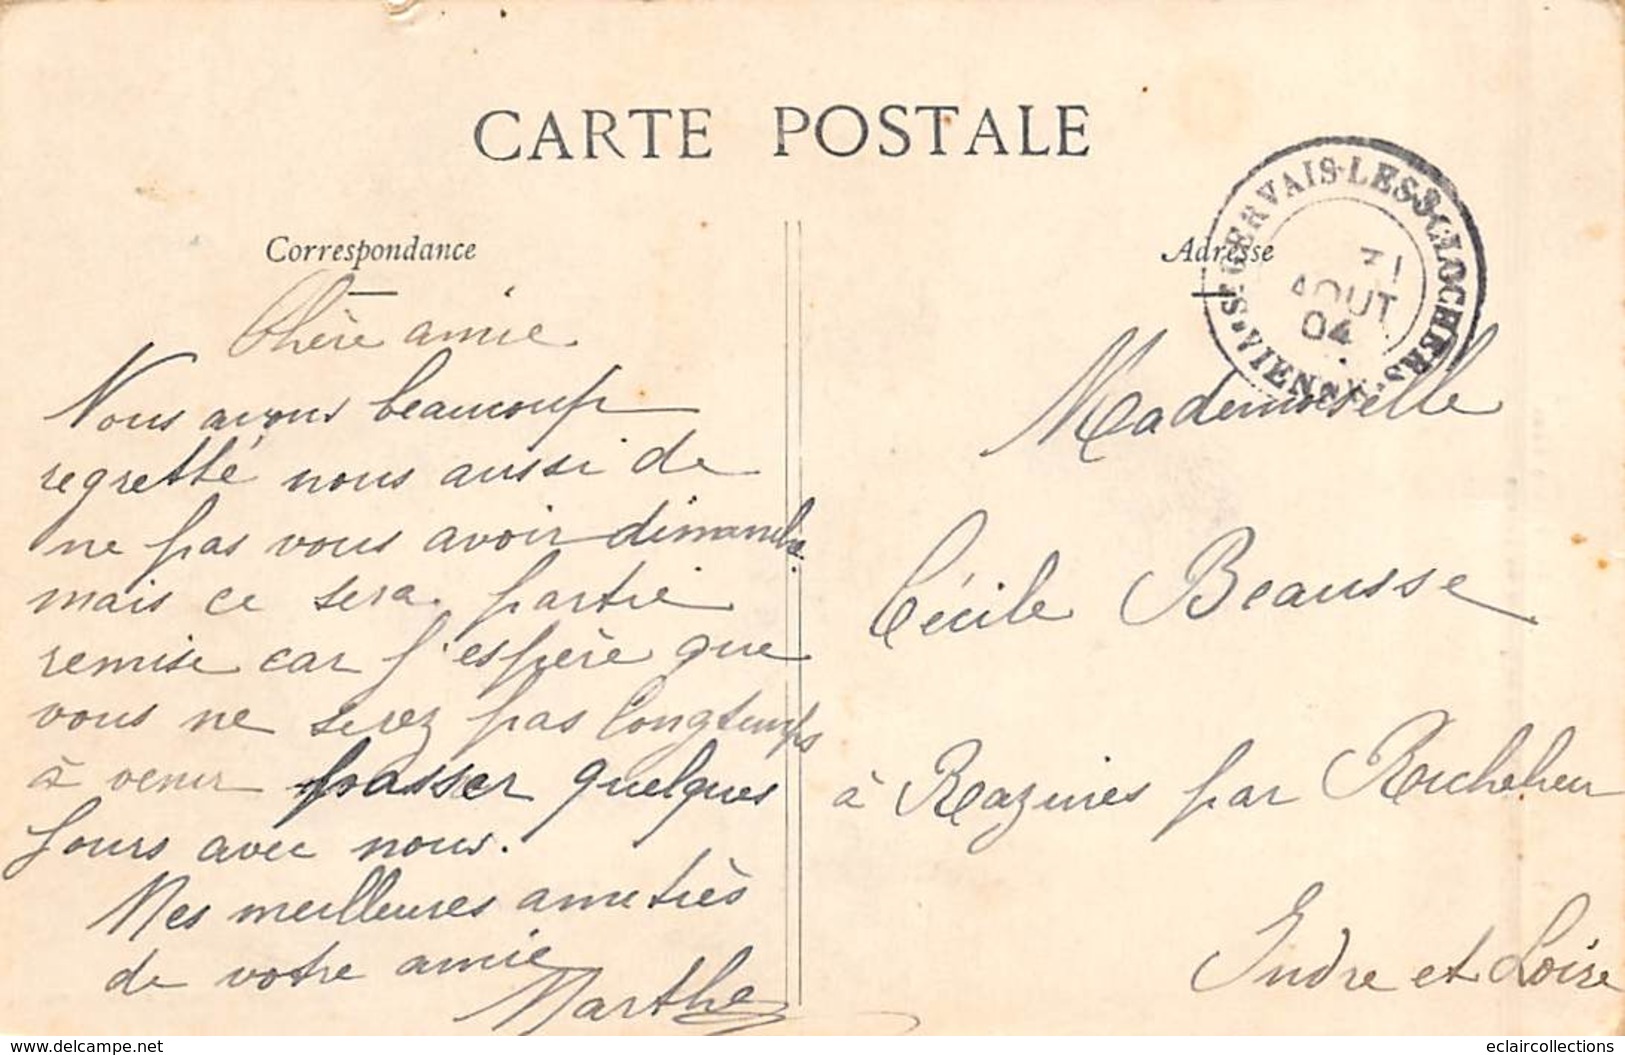 CARTE POSTALE
Correspondance
Chère amie
Nous avons beaucoup
regretté nous aussi de
ne pas vous avoir dimanche
mais ce sera partie
remise car j'espère que
vous ne serez pas longtemps
à venir passer quelques
jours avec nous.
Mes meilleures amitiès
de votre amie
Marthe
Adresse
ST GERVAIS-LES-3-CLOCHERS
VIENNE
31
AOUT
04
Mademoiselle
Cécile Beausse
à Razines par Richelieu
Indre et Loire
www.delcampe.net
eclaircollections